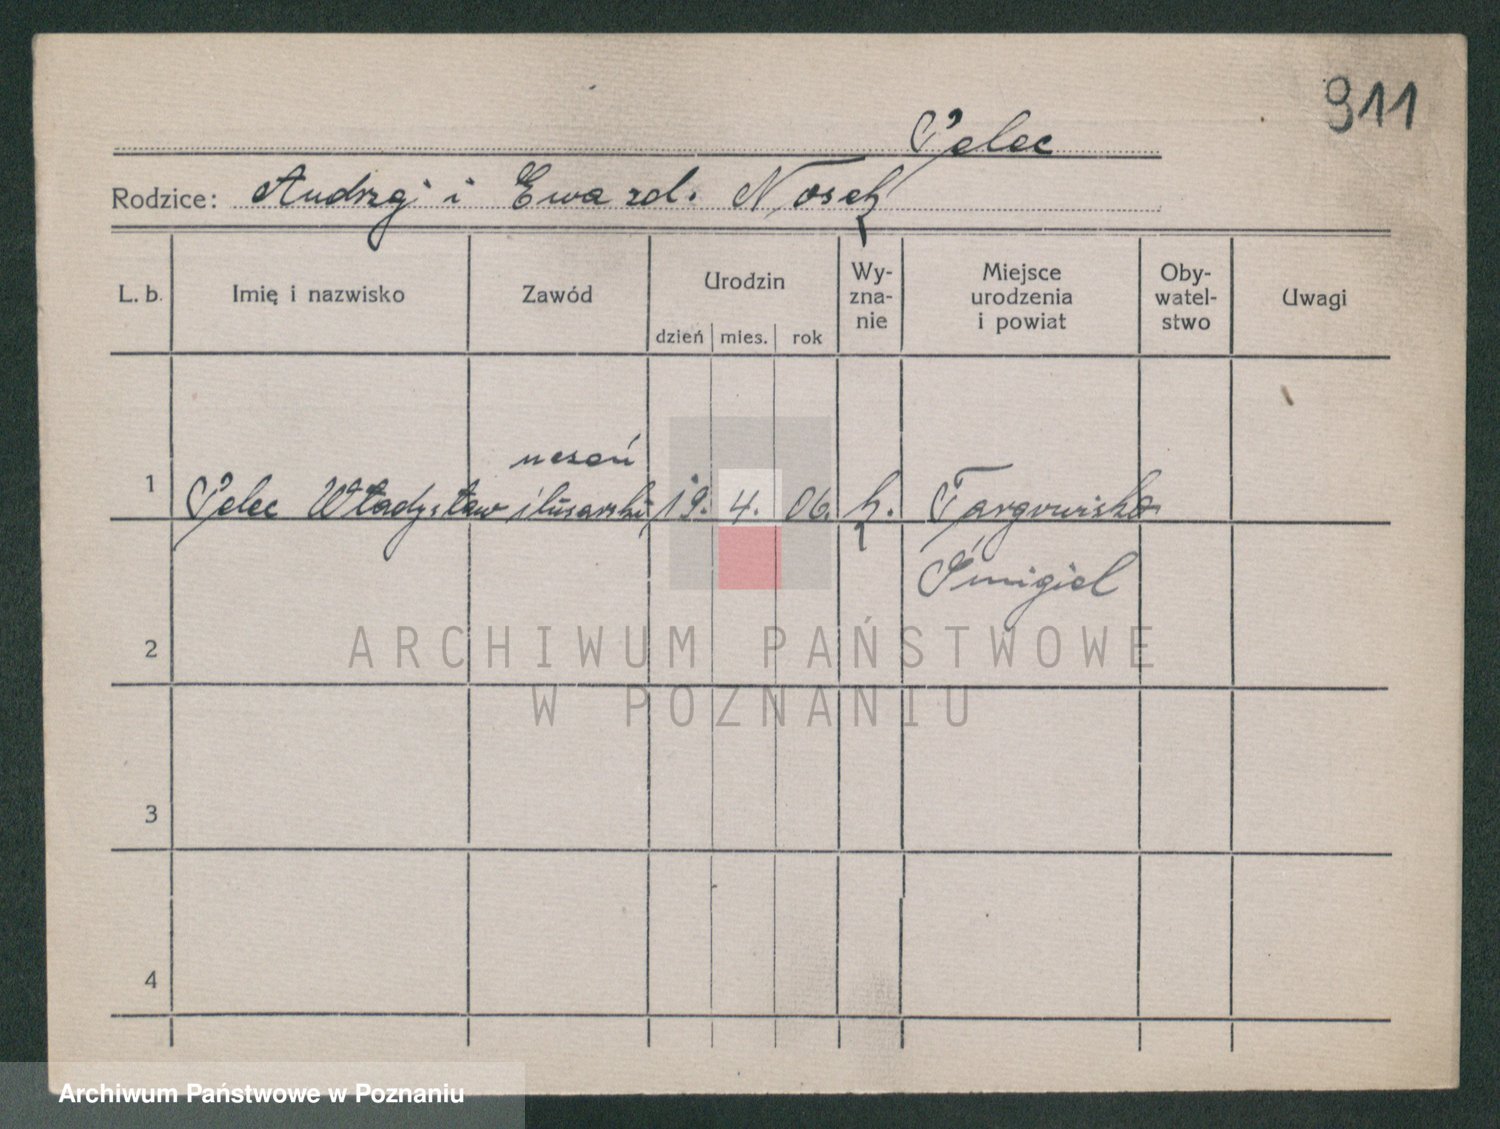 911
Pelec
Rodzice: Andrzej i Ewa zd. Nosek
L. b. Imię i nazwisko Zawód Urodzin dzień mies. rok Wy-zna-nie Miejsce urodzenia i powiat Oby-watel-stwo Uwagi
uczeń
1 Pelec Władysław ślusarski 19. 4. 06. k. Targowisko
Śmigiel
2
3
4
ARCHIWUM PAŃSTWOWE
W POZNANIU
Archiwum Państwowe w Poznaniu